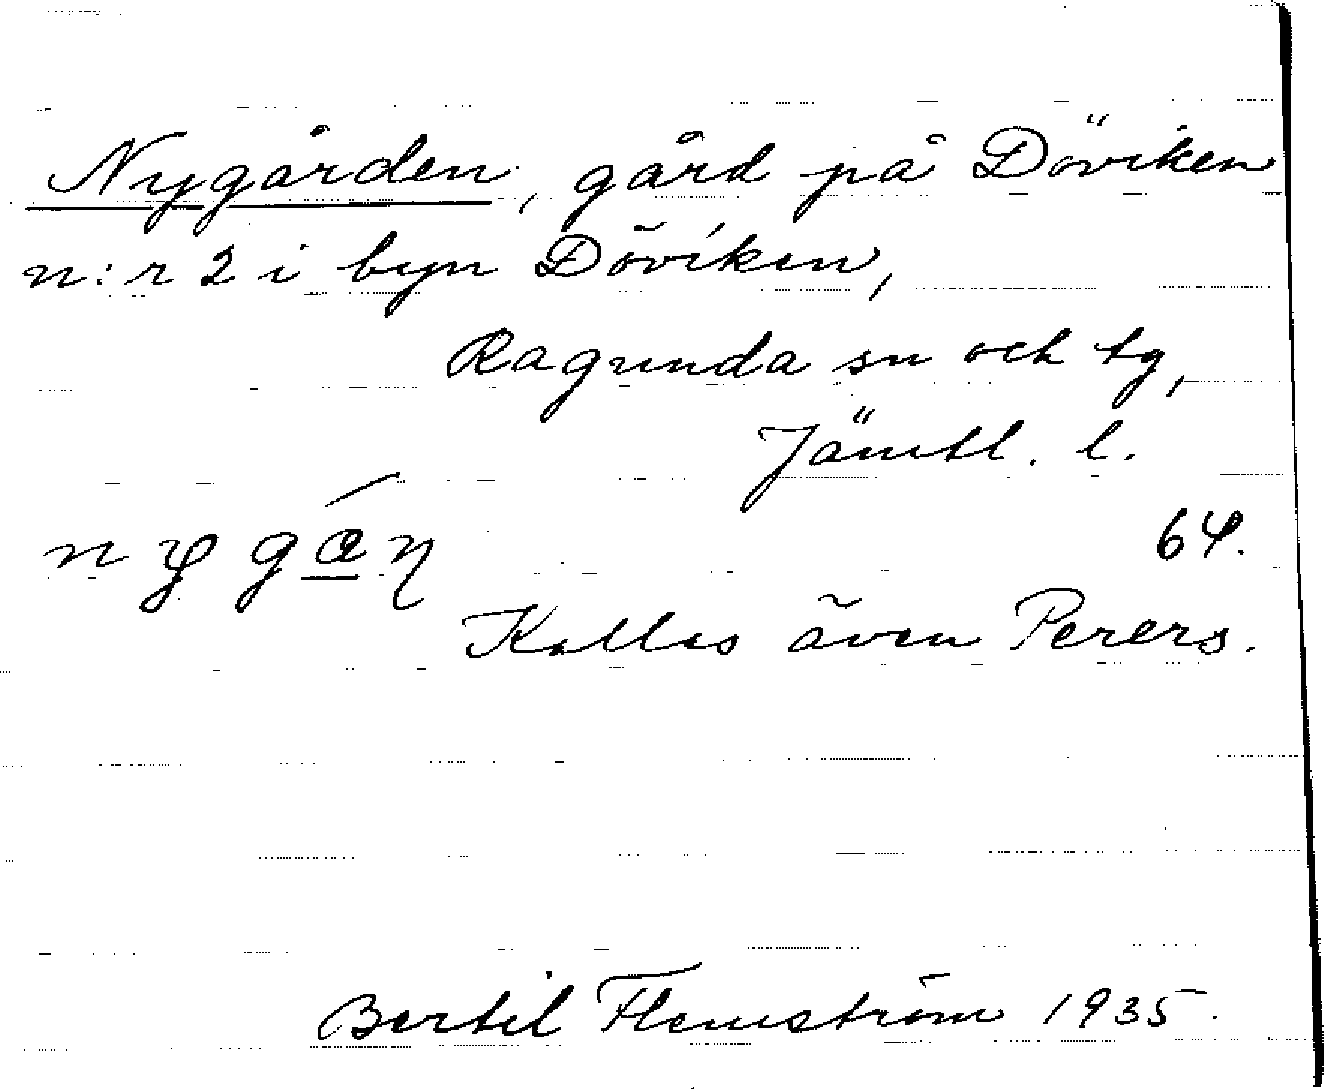 Nygården, gård på Döviken
n:r 2 i byn Döviken,
Ragunda sn och tg,
Jämtl. l.
64.
Kallas även Perers.
Bertil Flemström 1935.